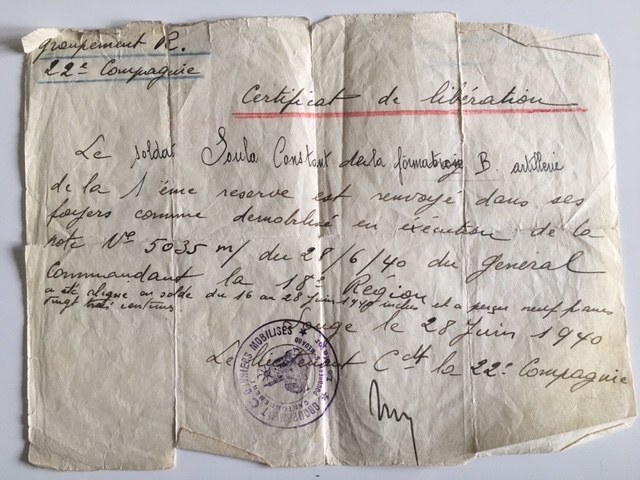 groupement R.
22e Compagnie
Certificat de libération
Le soldat Soula Constant de la formation B. artillerie
de la 1 ème reserve est renvoyé dans ses
foyers comme demobilisé en exécution de la
note No 5035 m/ du 28/6/40 du general
Commandant la 18e Région
a été aligné en solde du 16 au 28 juin 1940 inclus et a perçu neuf francs
vingt centimes.
le 28 Juin 1940
Le lieutenant Cdt la 22e Compagnie
OUVRIERS MOBILISÉS